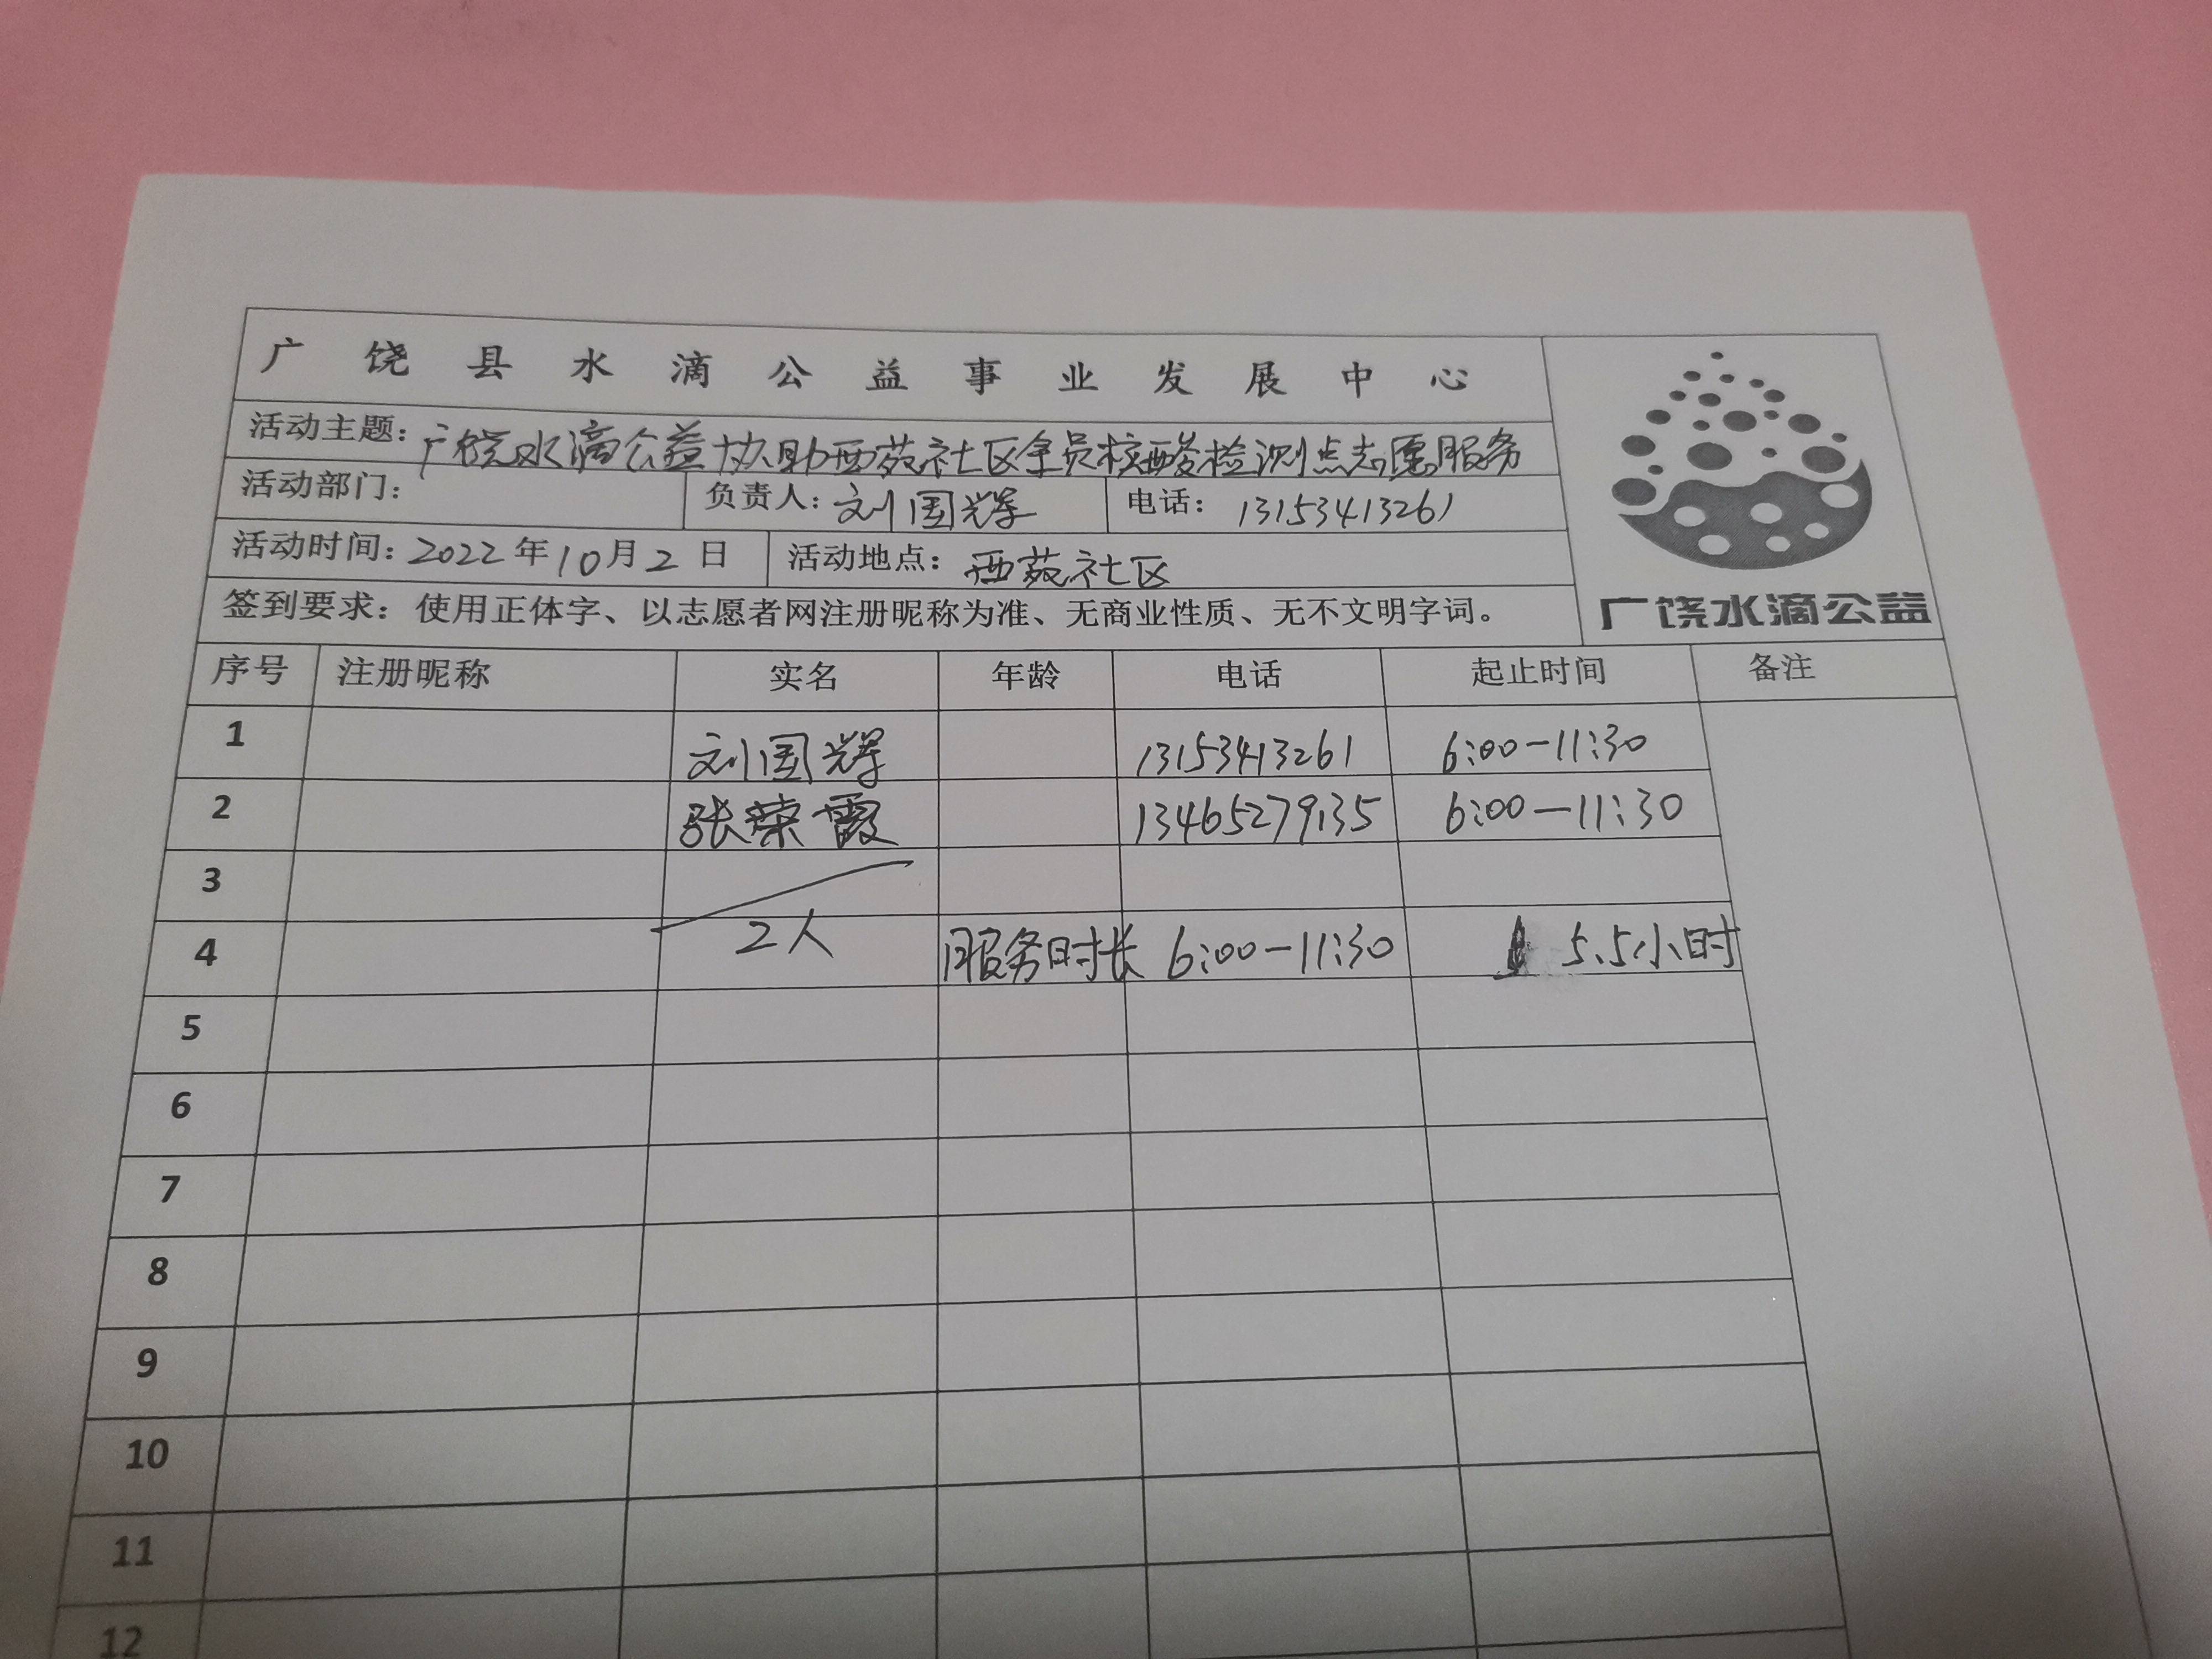 广饶县水滴公益事业发展中心
活动主题：广饶水滴公益协助西苑社区全员核酸检测点志愿服务
活动部门： 负责人：刘国辉 电话：13153413261
活动时间：2022年10月2日 活动地点：西苑社区
签到要求：使用正体字、以志愿者网注册昵称为准、无商业性质、无不文明字词。
广饶水滴公益
序号 注册昵称 实名 年龄 电话 起止时间 备注
1 刘国辉 13153413261 6:00-11:30
2 张荣霞 13465279135 6:00-11:30
3
4 2人 服务时长 6:00-11:30 5.5小时
5
6
7
8
9
10
11
12